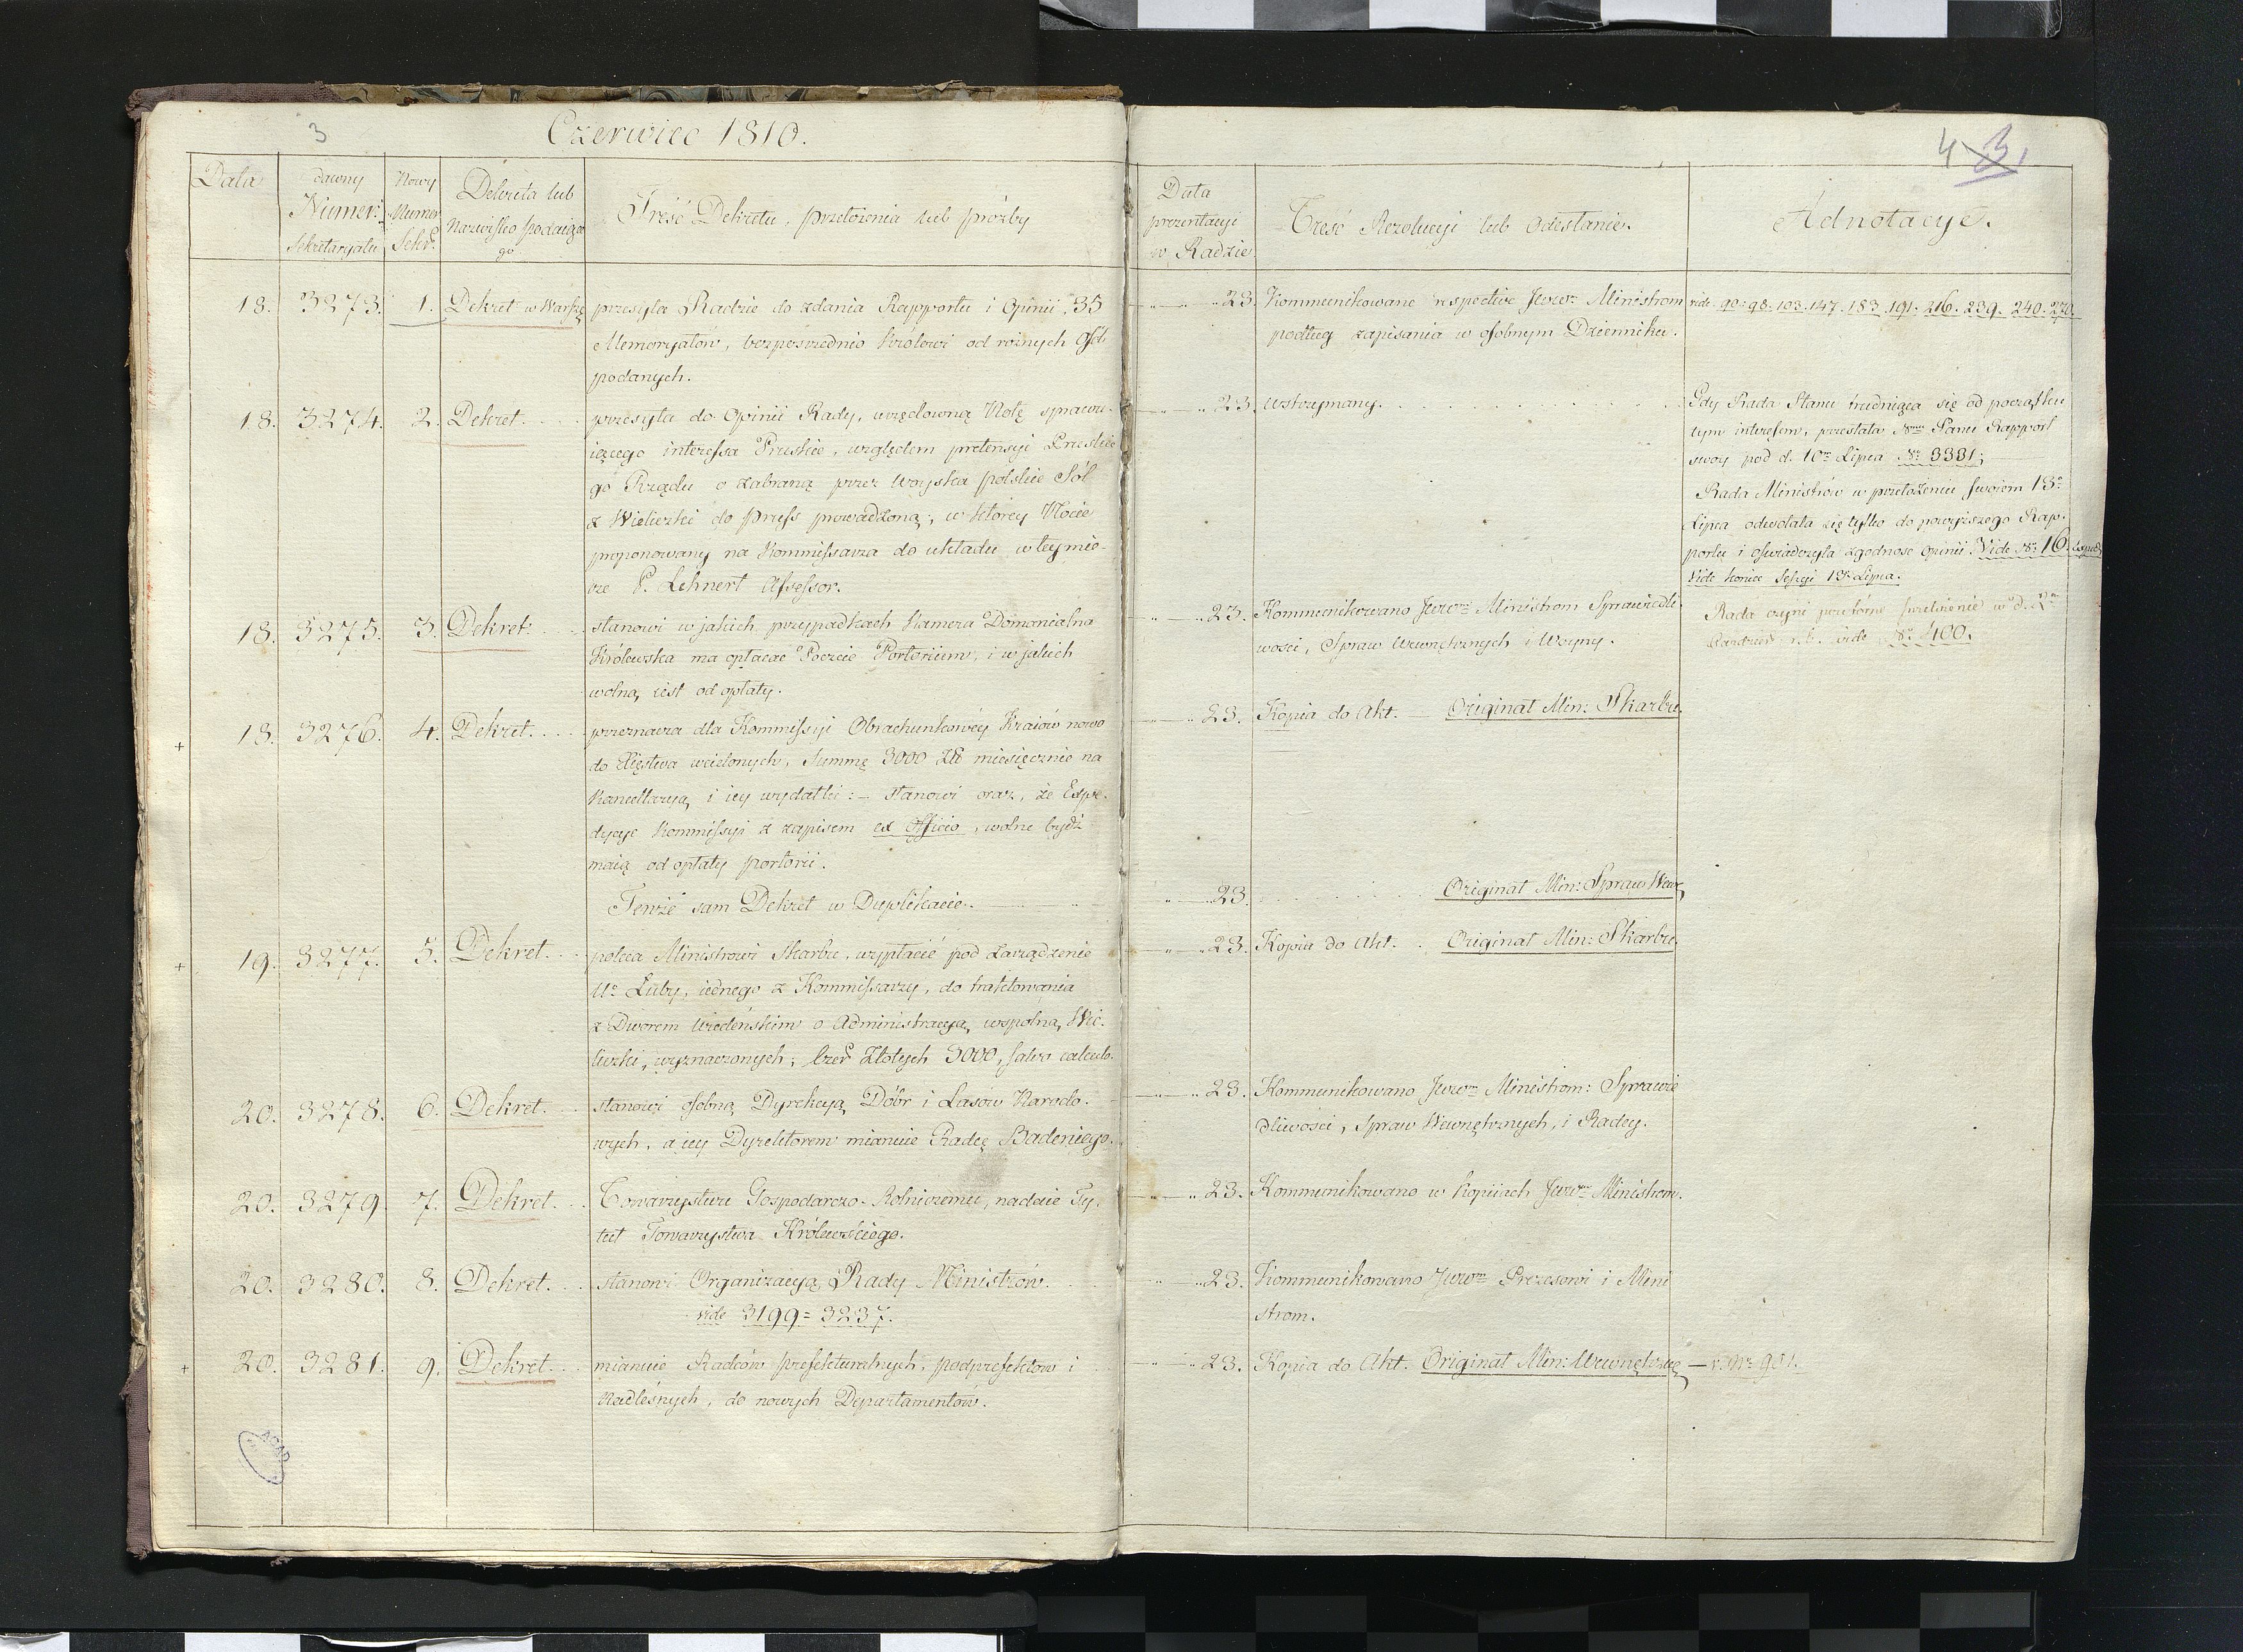 3
Czerwiec 1810.
Data
dawny Numer: Sekretaryatu
Nowy Numer Sekr:
Dekreta lub Nazwisko podaiące
go
Treść Dekretu, przełożenia lub prośby
18. 3273. 1. Dekret w Warsz: przesyła Radzie do zdania Rapportu i Opinii, 35
Memoryałów, bezpośrednio Krolowi od rożnych Osób
podanych.
18. 3274. 2. Dekret. przesyła do Opinii Rady, urzędowną Notę sprawu-
iącego interessa Pruskie, względem pretensyi Prusskie
go Rządu o zabraną przez Woyska polskie Sól
z Wieliczki do Pruss prowadzoną; w którey Nocie
proponowany na Kommissarza do układu w tey mie-
rze P. Lehnert Assessor.
18. 3275. 3. Dekret. stanowi w jakich przypadkach Kamera Domanialna
Królewska ma opłacać Poczcie Portorium, i w jakich
wolną iest od opłaty.
+ 18. 3276. 4. Dekret. przeznacza dla Kommissyi Obrachunkowéy Kraiów nowo
do Xięstwa wcielonych, Summę 3000 Zł miesięcznie na
Kancellaryą i iey wydatki: – stanowi oraz, że Expe-
dycye Kommissyi z zapisem ex Officio, wolne bydź
maią od opłaty portorii.
Tenże sam Dekret w Duplikacie.
+ 19. 3277. 5. Dekret. poleca Ministrowi Skarbu, wypłacić pod zarządzenie
Luby, iednego z Kommissarzy, do traktowania
z Dworem Wiedeńskim o Administracyą wspolną Wie-
liczki, wyznaczonych; Czer. Złotych 3000, salvo calculo.
20. 3278. 6. Dekret. stanowi osobną Dyrekcyą Dóbr i Lasów Narodo-
wych, a iey Dyrektorem mianuie Radcę Badeniego.
20. 3279. 7. Dekret. Towarzystwu Gospodarczo-Rolniczemu, nadaie Ty-
tuł Towarzystwa Królewskiego.
20. 3280. 8. Dekret. stanowi Organizacyą Rady Ministrów.
vide 3199 = 3237.
+ 20. 3281. 9. Dekret. mianuie Radców prefekturalnych, podprefektów i
Nadleśnych, do nowych Departamentów.
AGAD
4 3
Data
prezentacyi
w Radzie
Treść Rezolucyi lub Odesłanie.
Adnotacye.
23. Kommunikowane respective Jwwm Ministrom
podług zapisania w osobnym Dzienniku.
vide 90. 98. 103. 147. 183. 191. 216. 239. 240. 270.
23. wstrzymany.
Gdy Rada Stanu trudniąca się od początku
tym interesem, przesłała Panu Rapport
swoy pod d. 10 Lipca No 3331;
Rada Ministrów w przełożeniu swoiem 13o
Lipca odwołała się tylko do powyższego Rap-
portu i oświadczyła zgodność Opinii. Vide No 16.
Vide koniec Sessyi 13 Lipca.
Rada czyni powtórne przełożenie w d. 2
Październ. r. b. vide No 400.
23. Kommunikowano Jwwm Ministrom Sprawiedli
wości, Spraw Wewnętrznych i Woyny.
23. Kopia do Akt. – Originał Min: Skarbu.
23. Originał Min: Spraw Wew:
23. Kopia do Akt. Originał Min: Skarbu.
23. Kommunikowano Jwwm Ministrom: Sprawie
dliwości, Spraw Wewnętrznych, i Radcy.
23. Kommunikowano w kopiiach Jwwm Ministrom.
23. Kommunikowano Jwwm Prezesowi i Mini
strom.
23. Kopia do Akt. Originał Min: Wewnętrz: – v. No 901.